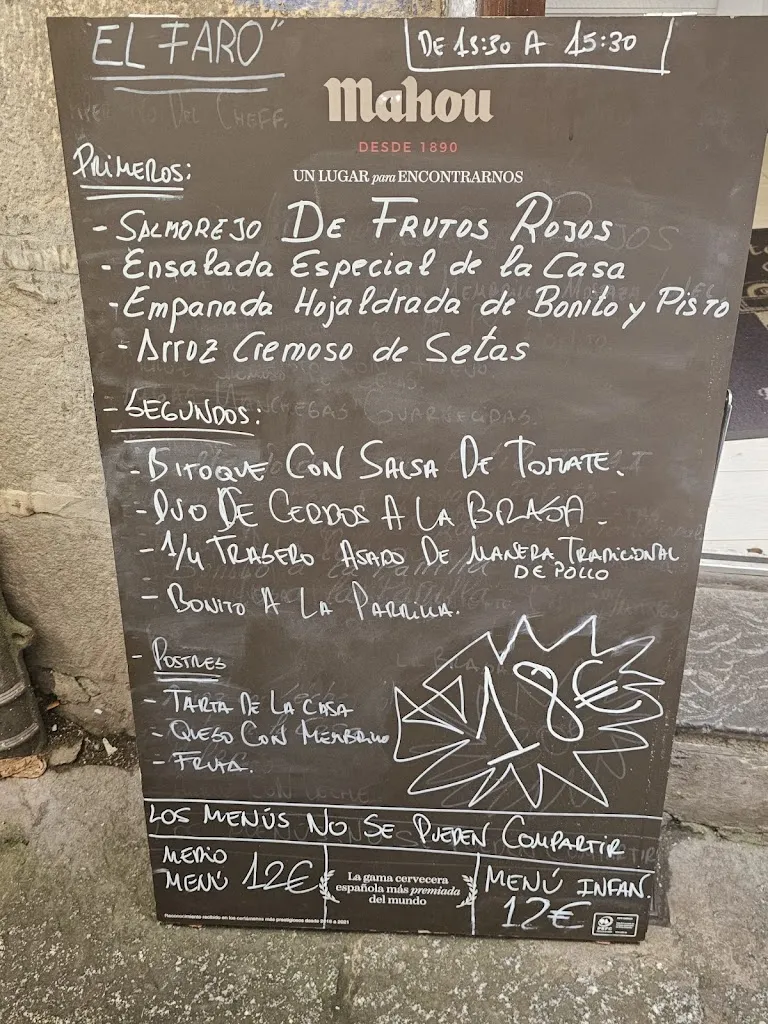 "EL FARO"
DE 13:30 A 15:30
Mahou
DESDE 1890
UN LUGAR para ENCONTRARNOS
PRIMEROS:
- SALMOREJO DE FRUTOS ROJOS
- Ensalada Especial de la Casa
- Empanada Hojaldrada de Bonito y Pisto
- Arroz Cremoso de Setas
- SEGUNDOS:
- BITOQUE CON SALSA DE TOMATE.
- DUO DE CERDOS A LA BRASA.
- 1/4 TRASERO ASADO DE MANERA TRADICIONAL
DE POLLO
- BONITO A LA PARRILLA.
- POSTRES
- TARTA DE LA CASA
- QUESO CON MEMBRILLO
- FRUTA.
18€
LOS MENÚS NO SE PUEDEN COMPARTIR
MEDIO
MENÚ 12€
La gama cervecera
española más premiada
del mundo
MENÚ INFAN.
12€
Reconocimiento recibido en los certámenes más prestigiosos desde 2018 a 2021
PEFC